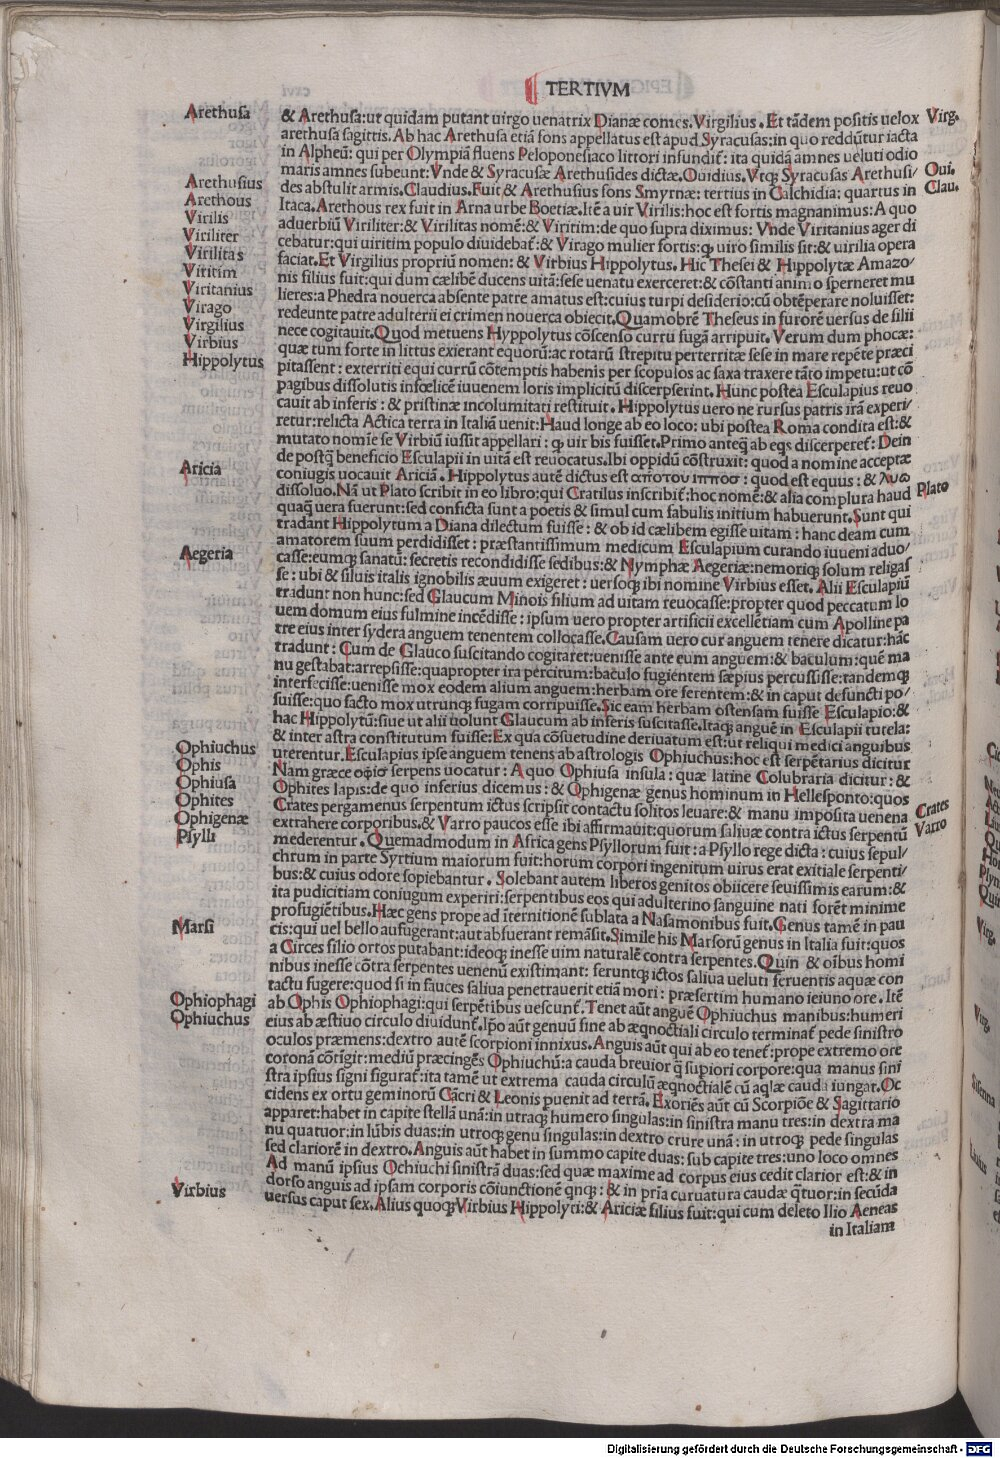 TERTIVM
Arethusa
& Arethusa:ut quidam putant uirgo uenatrix Dianæ comes.Virgilius.Et tãdem positis uelox
Virg.
arethusa sagittis.Ab hac Arethusa etiã fons appellatus est apud Syracusas:in quo reddũtur iacta
in Alpheũ: qui per Olympiã fluens Peloponesiaco littori infundit: ita quidã amnes ueluti odio
maris amnes subeunt:Vnde & Syracusæ Arethusides dictæ.Ouidius.Vtq; Syracusas Arethusi/
Oui.
Arethusius
des abstulit armis.Claudius.Fuit & Arethusius fons Smyrnæ: tertius in Calchidia: quartus in
Clau.
Arethous
Itaca.Arethous rex fuit in Arna urbe Boetiæ.Itẽ a uir Virilis:hoc est fortis magnanimus:A quo
Virilis
aduerbiũ Viriliter:& Virilitas nomẽ:& Viritim:de quo supra diximus: Vnde Viritanius ager di
Viriliter
cebatur:qui uiritim populo diuidebat:& Virago mulier fortis:q uiro similis sit:& uirilia opera
Virilitas
faciat.Et Virgilius propriũ nomen: & Virbius Hippolytus. Hic Thesei & Hippolytæ Amazo/
Viritim
nis filius fuit:qui dum cælibẽ ducens uitã:sese uenatu exerceret:& cõstanti animo sperneret mu
Viritanius
lieres:a Phedra nouerca absente patre amatus est:cuius turpi desiderio:cũ obtẽperare noluisset:
Virago
redeunte patre adulterii ei crimen nouerca obiecit.Quamobrẽ Theseus in furorẽ uersus de filii
Virgilius
nece cogitauit.Quod metuens Hyppolytus cõscenso curru fugã arripuit.Verum dum phocæ:
Virbius
quæ tum forte in littus exierant equorũ:ac rotarũ strepitu perterritæ sese in mare repẽte præci
Hippolytus
pitassent: exterriti equi currũ cõtemptis habenis per scopulos ac saxa traxere tãto impetu:ut cõ
pagibus dissolutis infœlicẽ iuuenem loris implicitũ discerpserint.Hunc postea Esculapius reuo
cauit ab inferis: & pristinæ incolumitati restituit.Hippolytus uero ne rursus patris irã experi/
retur:relicta Actica terra in Italiã uenit:Haud longe ab eo loco: ubi postea Roma condita est:&
mutato nomie se Virbiũ iussit appellari: q uir bis fuisset.Primo anteq ab eqs discerperet: Dein
de postq beneficio Esculapii in uitã est reuocatus.Ibi oppidũ cõstruxit: quod a nomine acceptæ
Aricia
coniugis uocauit Ariciã.Hippolytus autẽ dictus est απoτου ιππoσ: quod est equus: & λυω
dissoluo.Nã ut Plato scribit in eo libro:qui Cratilus inscribit:hoc nomẽ:& alia complura haud
Plato
quaq uera fuerunt:sed conficta sunt a poetis & simul cum fabulis initium habuerunt.Sunt qui
tradant Hippolytum a Diana dilectum fuisse: & ob id cælibem egisse uitam: hanc deam cum
amatorem suum perdidisset: præstantissimum medicum Esculapium curando iuueni aduo/
Aegeria
casse:eumq; sanatũ: secretis recondidisse sedibus:& Nymphæ Aegeriæ:nemoriq; solum religas
se: ubi & siluis italis ignobilis æuum exigeret: uersoq; ibi nomine Virbius esset. Alii Esculapiũ
tradunt non hunc:sed Glaucum Minois filium ad uitam reuocasse:propter quod peccatum Io
uem domum eius fulmine incẽdisse: ipsum uero propter artificii excellẽtiam cum Apolline pa
tre eius inter sydera anguem tenentem collocasse.Causam uero cur anguem tenere dicatur:hãc
tradunt: Cum de Glauco suscitando cogitaret:uenisse ante eum anguem:& baculum:quẽ ma
nu gestabat:arrepsisse:quapropter ira percitum:baculo fugientem sæpius percussisse:tandemq;
interfecisse:uenisse mox eodem alium anguem:herbam ore ferentem:& in caput defuncti po/
suisse:quo facto mox utrunq; fugam corripuisse.Sic eam herbam ostensam fuisse Esculapio:&
hac Hippolytũ:siue ut alii uolunt Glaucum ab inferis suscitasse.Itaq; anguẽ in Esculapii tutela:
& inter astra constitutum fuisse:Ex qua cõsuetudine deriuatum est:ut reliqui medici anguibus
Ophiuchus
uterentur.Esculapius ipse anguem tenens ab astrologis Ophiuchus:hoc est serpẽtarius dicitur
Ophis
Nam græce οφισ serpens uocatur: A quo Ophiusa insula: quæ latine Colubraria dicitur: &
Ophiusa
Ophites lapis:de quo inferius dicemus: & Ophigenæ genus hominum in Hellesponto:quos
Ophites
Crates pergamenus serpentum ictus scripsit contactu solitos leuare:& manu imposita uenena
Crates
Ophigenæ
extrahere corporibus.& Varro paucos esse ibi affirmauit:quorum saliuæ contra ictus serpentũ
Varro
Psylli
mederentur.Quemadmodum in Africa gens Psyllorum fuit: a Psyllo rege dicta: cuius sepul/
chrum in parte Syrtium maiorum fuit:horum corpori ingenitum uirus erat exitiale serpenti/
bus:& cuius odore sopiebantur. Solebant autem liberos genitos obiicere seuissimis earum:&
ita pudicitiam coniugum experiri:serpentibus eos qui adulterino sanguine nati forẽt minime
profugiẽtibus.Hæc gens prope ad iternitionẽ sublata a Nasamonibus fuit.Genus tamẽ in pau
Marsi
cis:qui uel bello aufugerant:aut abfuerant remãsit.Simile his Marsorũ genus in Italia fuit:quos
a Circes filio ortos putabant:ideoq; inesse uim naturalẽ contra serpentes.Quin & oibus homi
nibus inesse cõtra serpentes uenenũ existimant: feruntq; ictos saliua ueluti feruentis aquæ con
tactu fugere:quod si in fauces saliua penetrauerit etiã mori: præsertim humano ieiuno ore. Itẽ
Ophiophagi
ab Ophis Ophiophagi:qui serpẽtibus uescunt. Tenet aũt anguẽ Ophiuchus manibus:humeri
Ophiuchus
eius ab æstiuo circulo diuidunt.Ipo aũt genuũ fine ab æqnoctiali circulo terminat pede sinistro
oculos præmens:dextro autẽ scorpioni innixus.Anguis aũt qui ab eo tenet:prope extremo ore
coronã cõtigit:mediũ præcingẽs Ophiuchũ:a cauda breuior q supiori corpore:qua manus sini
stra ipsius signi figurat:ita tamẽ ut extrema cauda circulũ æqnoctialẽ cũ aqlæ cauda iungat.Oc
cidens ex ortu geminorũ Cãcri & Leonis puenit ad terrã. Exoriẽs aũt cũ Scorpiõe & Sagittario
apparet:habet in capite stellã unã:in utraq; humero singulas:in sinistra manu tres:in dextra ma
nu quatuor:in lũbis duas:in utroq; genu singulas:in dextro crure unã: in utroq; pede singulas
sed clariorẽ in dextro.Anguis aũt habet in summo capite duas: sub capite tres:uno loco omnes
Ad manũ ipsius Ochiuchi sinistrã duas:sed quæ maxime ad corpus eius cedit clarior est:& in
Virbius
dorso anguis ad ipsam corporis cõiunctionẽ qnq;: & in pria curuatura caudæ qtuor:in secũda
uersus caput sex.Alius quoq; Virbius Hippolyti:& Ariciæ filius fuit:qui cum deleto Ilio Aeneas
in Italiam
Digitalisierung gefördert durch die Deutsche Forschungsgemeinschaft - DFG